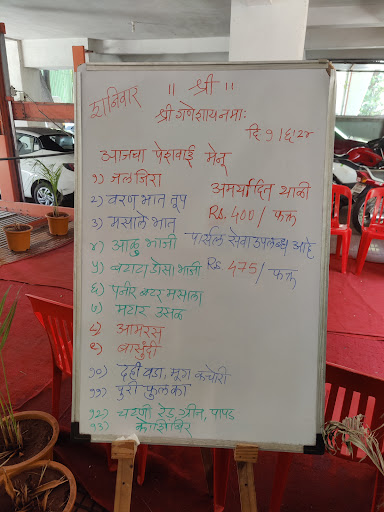 शनिवार
॥ श्री ॥
श्री गणेशाय नमः
दि १/६/२४
आजचा पेशवाई मेनू
१) जलजिरा
अमर्यादित थाळी
२) वरण भात तूप
Rs. 400/- फक्त
३) मसाले भात
पार्सल सेवा उपलब्ध आहे
४) आळू भाजी
५) बटाटा डोसा भाजी
Rs 475/- फक्त
६) पनीर बटर मसाला
७) मटार उसळ
८) आमरस
९) बासुंदी
१०) दही वडा, मूग कचोरी
११) पुरी फुलका
१२) चटणी रेड, ग्रीन, पापड
१३) कोशिंबिर